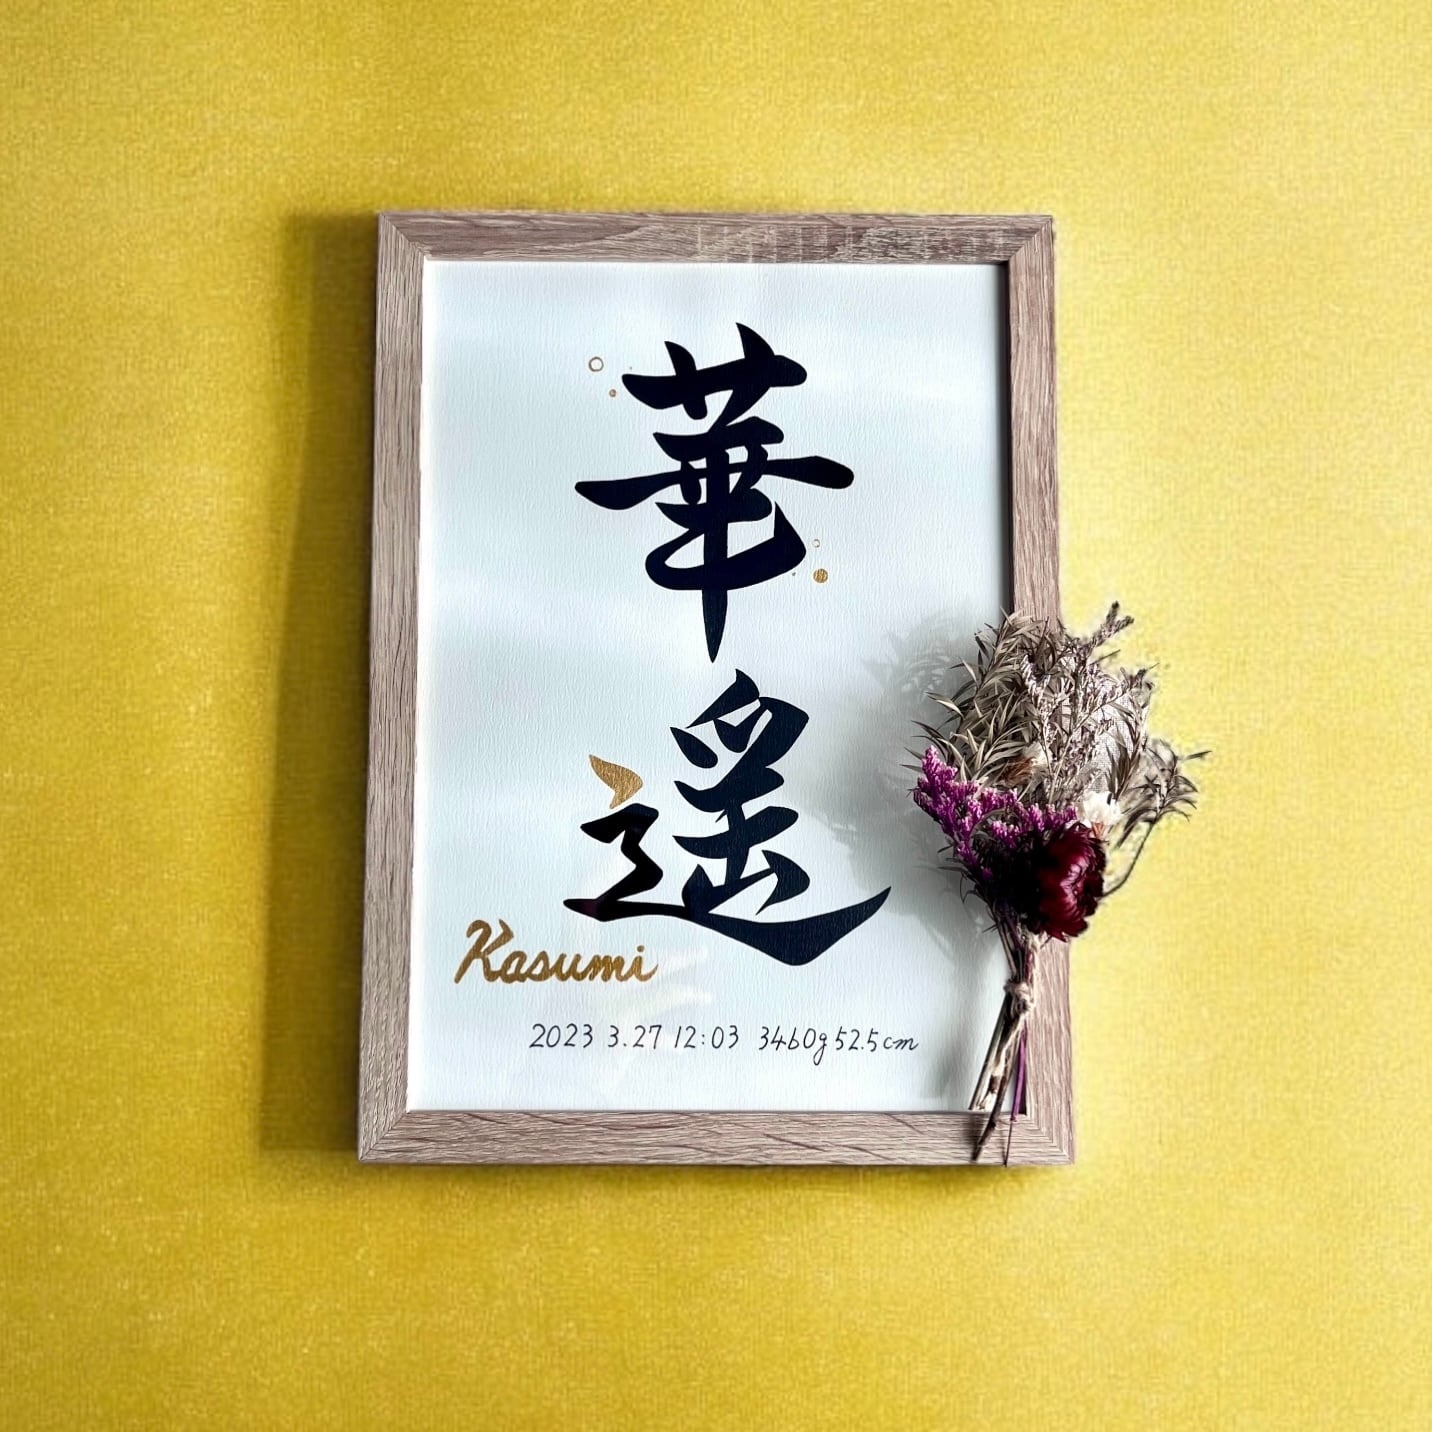 華遥
Kasumi
2023 3.27 12:03 3460g 52.5cm